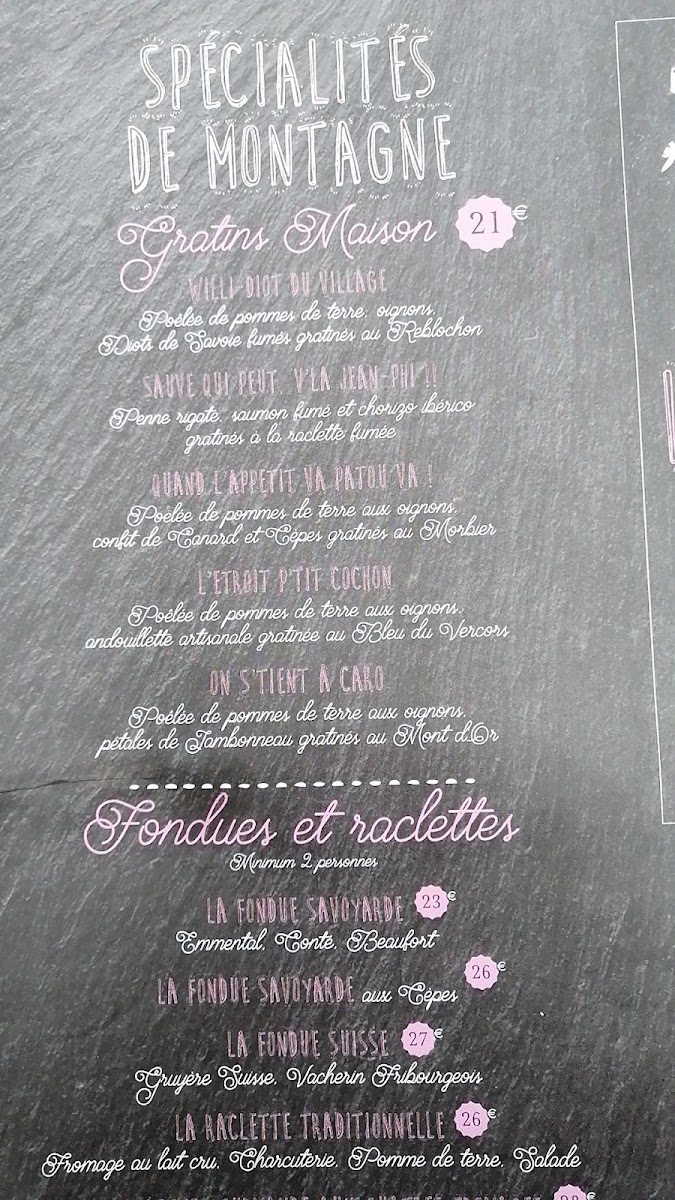 SPÉCIALITÉS
DE MONTAGNE
Gratins Maison 21€
WIELI DIOT DU VILLAGE
Poêlée de pommes de terre, oignons,
Diots de Savoie fumés gratinés au Reblochon
SAUVE QUI PEUT, V'LA JEAN-PHI !!
Penne rigate, saumon fumé et chorizo ibérico
gratinés à la raclette fumée
QUAND L'APPETIT VA PATOU VA !
Poêlée de pommes de terre aux oignons,
confit de Canard et Cèpes gratinés au Morbier
L'ETROIT P'TIT COCHON
Poêlée de pommes de terre aux oignons,
andouillette artisanale gratinée au Bleu du Vercors
ON S'TIENT A CARO
Poêlée de pommes de terre aux oignons,
pétales de Jambonneau gratinés au Mont d'Or
Fondues et raclettes
Minimum 2 personnes
LA FONDUE SAVOYARDE 23€
Emmental, Comté, Beaufort
LA FONDUE SAVOYARDE aux Cèpes 26€
LA FONDUE SUISSE 27€
Gruyère Suisse, Vacherin Fribourgeois
LA RACLETTE TRADITIONNELLE 26€
Fromage au lait cru, Charcuterie, Pomme de terre, Salade
28€